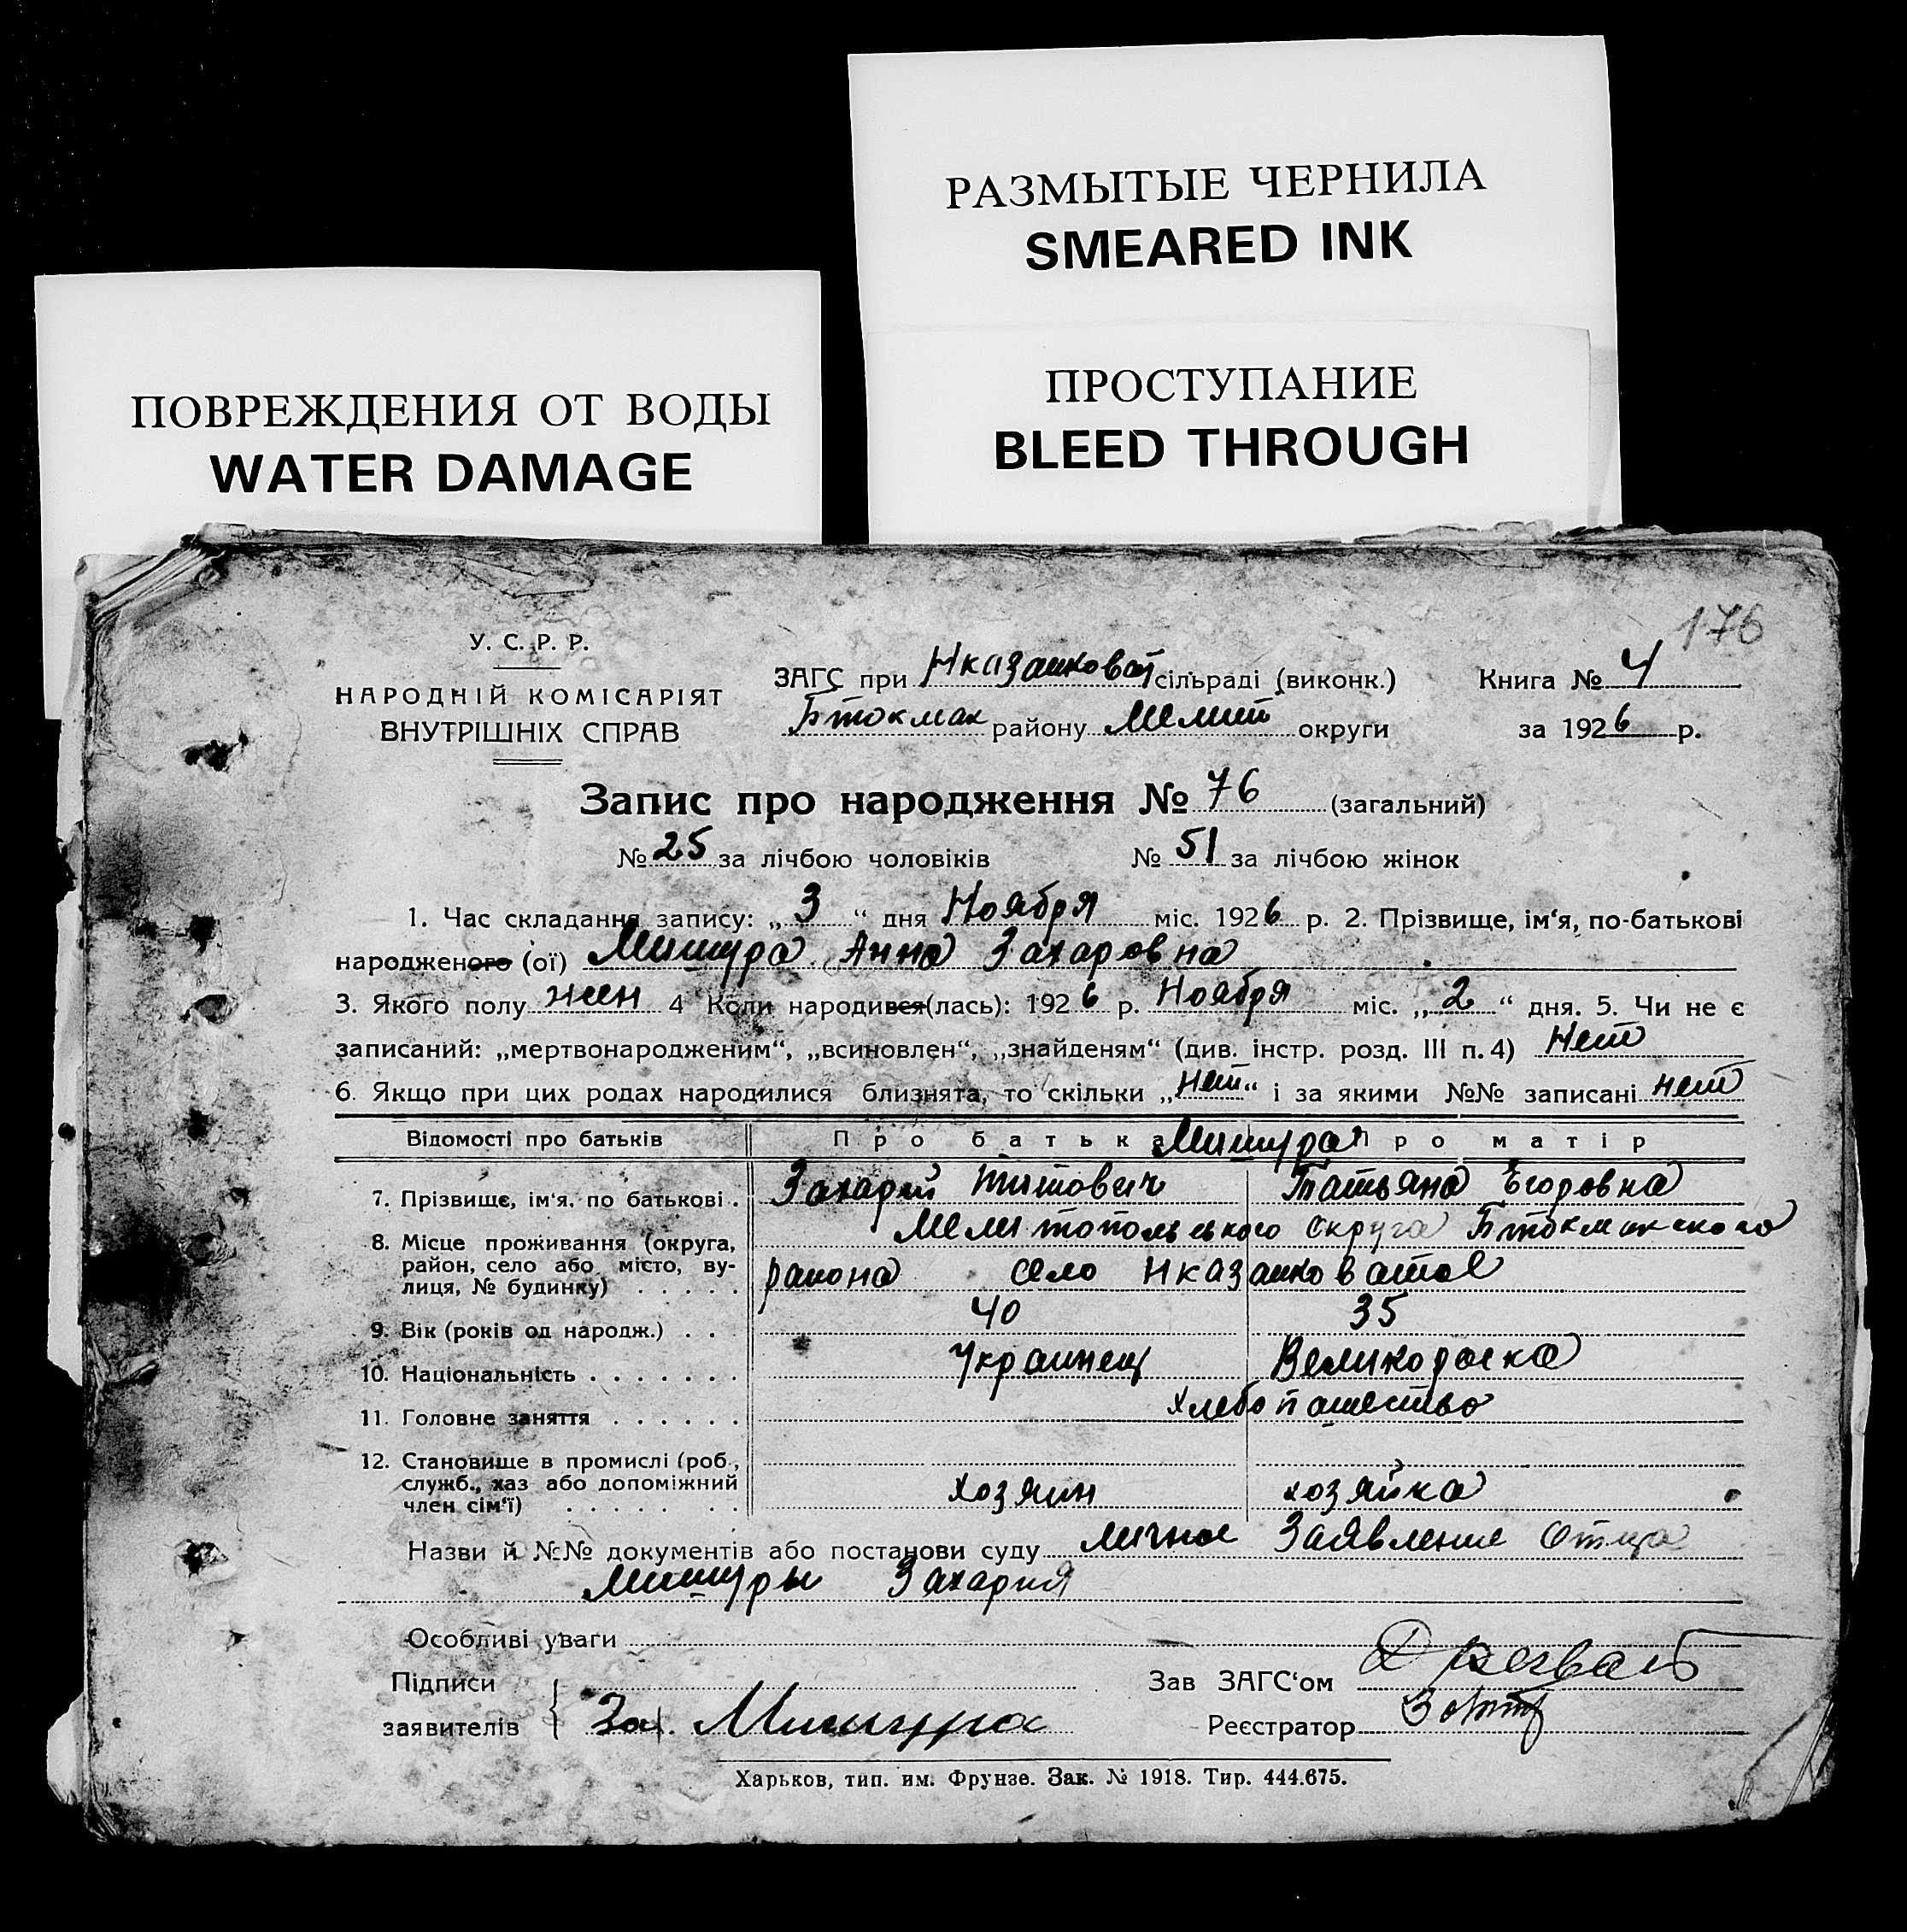 РАЗМЫТЫЕ ЧЕРНИЛА
SMEARED INK
ПРОСТУПАНИЕ
BLEED THROUGH
ПОВРЕЖДЕНИЯ ОТ ВОДЫ
WATER DAMAGE
176
У. С. Р. Р.
НАРОДНІЙ КОМІСАРІЯТ
ВНУТРІШНІХ СПРАВ
ЗАГС при Нказанковат сільраді (виконк.)
Бтокмак району Мелит округи
Книга № 4
за 1926 р.
Запис про народження № 76 (загальний)
№ 25 за лічбою чоловіків № 51 за лічбою жінок
1. Час складання запису: „ 3 “ дня Ноября міс. 1926 р. 2. Прізвище, ім‘я, по-батькові
народженого (ої) Мишура Анна Захаровна
3. Якого полу жен 4 Коли народився(лась): 1926 р. Ноября міс. „ 2 “ дня. 5. Чи не є
записаний: „мертвонародженим“, „всиновлен“, „знайденям“ (див. інстр. розд. III п. 4) Нет
6. Якщо при цих родах народилися близнята, то скільки „нет“ і за якими №№ записані нет
Відомості про батьків Про батька Мишура Про матір
7. Прізвище, ім‘я. по батькові . Захарий Титович Татьяна Егоровна
8. Місце проживання (округа, район, село або місто, вулиця, № будинку) . . . . .
Мелитопольського округа Бтокмакского
района село Нказанковатое
9. Вік (років од народж.) . . . 40 35
10. Національність . . . . . . . Украинец Великороска
11. Головне заняття . . . . . . Хлебопашество
12. Становище в промислі (роб., служб., хаз або допоміжний член сім‘ї) . . . . . . . хозяин хозяйка
Назви й №№ документів або постанови суду личное Заявление Отца
Мишуры Захария
Особливі уваги
Підписи
заявителів Зах. Мишура
Зав ЗАГС‘ом
Реєстратор
Харьков, тип. им. Фрунзе. Зак. № 1918. Тир. 444.675.